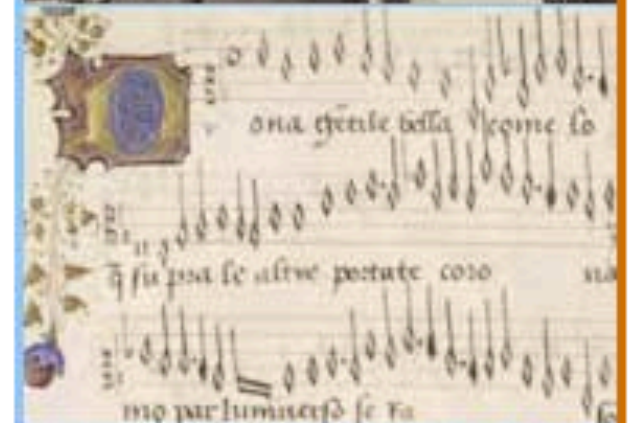 Dona gẽtile bella come lo
q̃ su pra le altre portate coro na
mo par lumiuerso se fa so